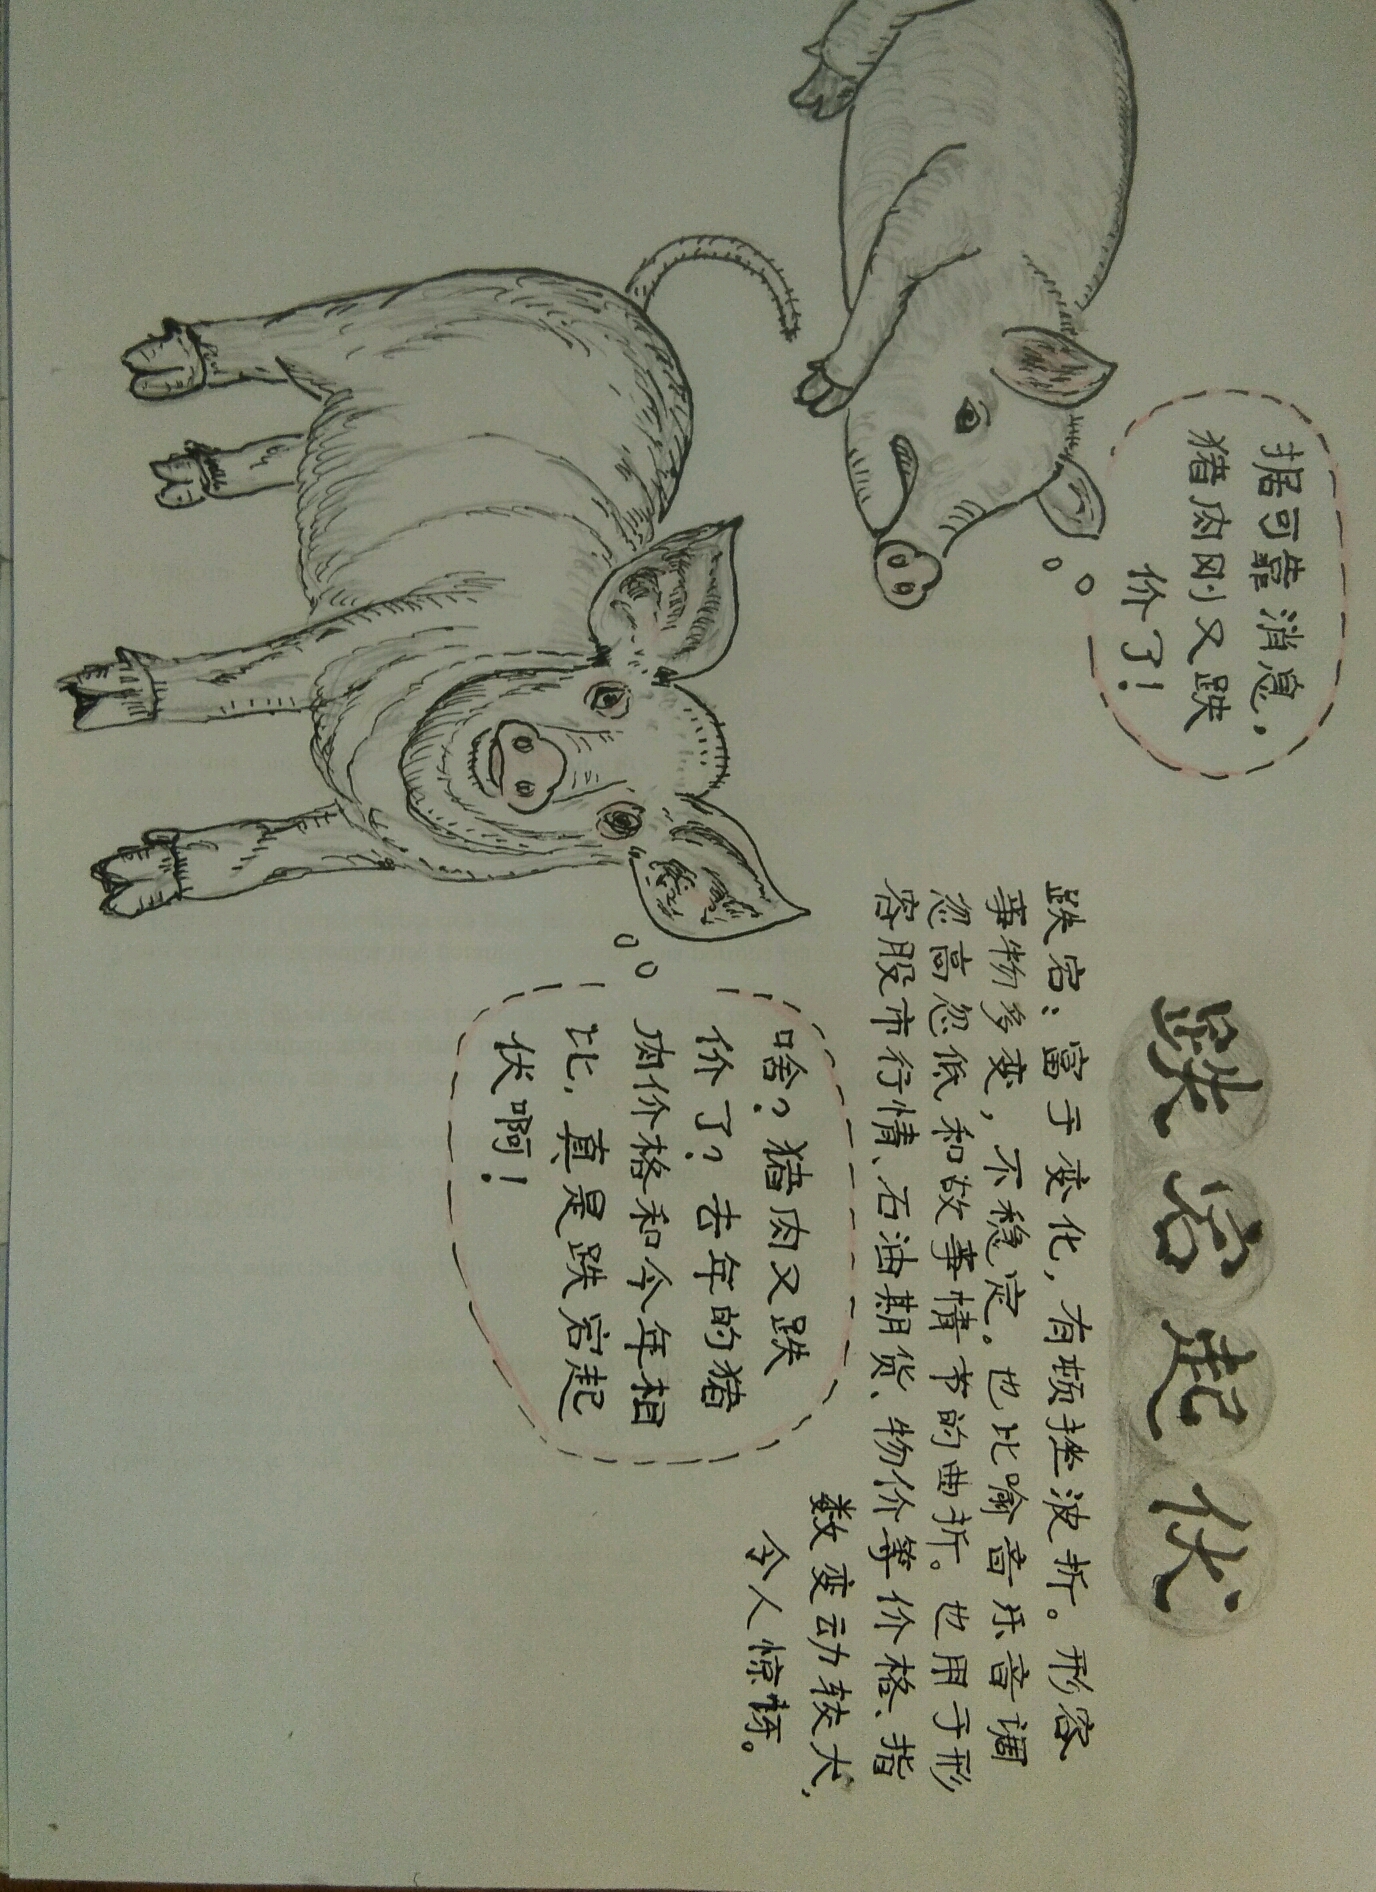 跌宕起伏
据可靠消息，
猪肉刚又跌
价了！
跌宕：富于变化，有顿挫波折。形容
事物多变，不稳定。也比喻音乐音调
忽高忽低和故事情节的曲折。也用于形
容股市行情、石油期货、物价等价格、指
数变动较大，
令人惊讶。
啥？猪肉又跌
价了？去年的猪
肉价格和今年相
比，真是跌宕起
伏啊！